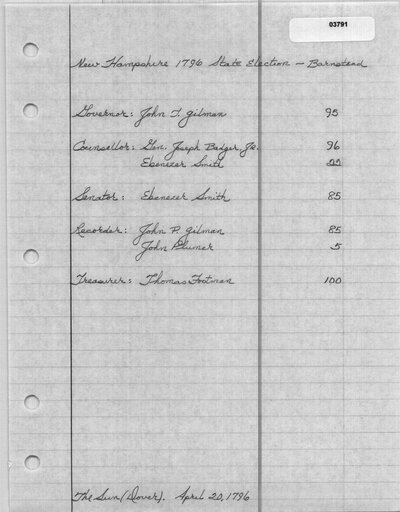 03791
New Hampshire 1796 State Election — Barnstead
Governor: John T. Gilman 95
Counsellor: Gen. Joseph Badger, Jr. 96
Ebenezer Smith
Senator: Ebenezer Smith 85
Recorder: John P. Gilman 85
John Plumer 5
Treasurer: Thomas Footman 100
The Sun (Dover). April 20, 1796